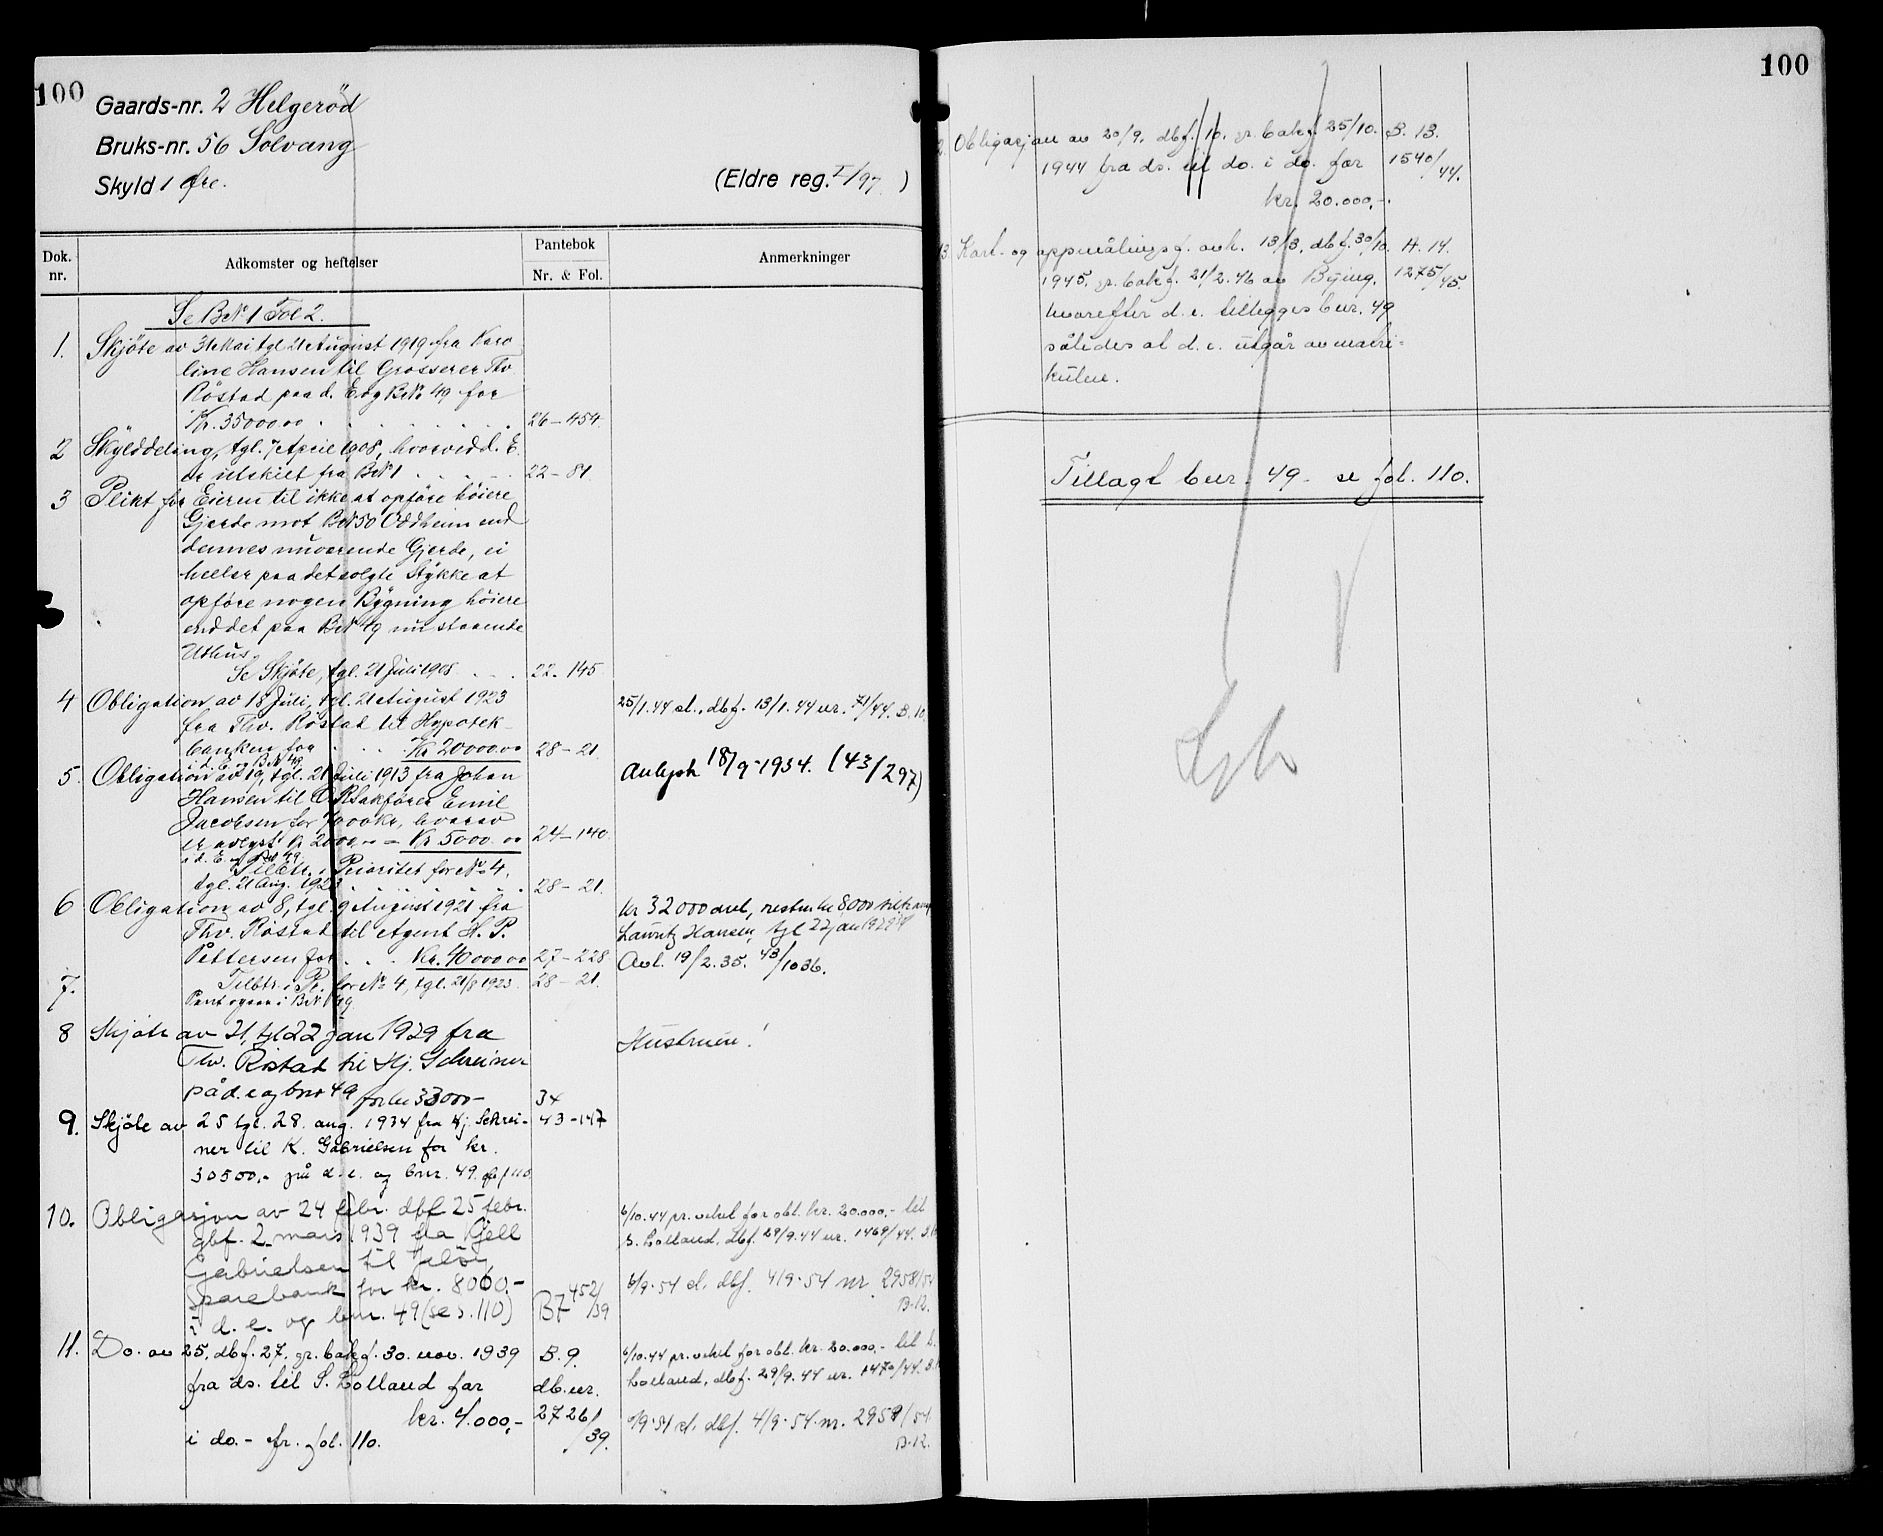 100
Gaards-nr. 2 Helgeröd
Bruks-nr. 56 Solvang
Skyld 1 Øre.
(Eldre reg. I/97 )
Dok. nr.
Adkomster og heftelser
Pantebok
Nr. & Fol.
Anmerkninger
Se BrN 1 Fol 2.
1. Skjöte av 31te Mai tgl 21de August 1919 fra Karo
line Hansen til Grosserer Thv
Röstad paa d. E og BrNo 49 for
Kr. 35000.00 26-454
2 Skylddeling, tgl. 7 April 1908, hvorved d. E.
er utskilt fra BrN 1 22-81.
3 Plikt for Eieren til ikke at opföre höiere
Gjerde mot BrN 50 Oddheim end
dennes nuværende Gjerde, ei
heller paa det solgte Stykke at
opföre nogen Bygning höiere
end det paa BrN 49 nu staaende
Uthus.
Se Skjöte, tgl. 21 Juli 1908 22-145
4 Obligation av 18 Juli, tgl. 21 August 1923
fra Thv. Röstad til Hypotek-
banken for Kr 20000.00 28-21.
i d. E og BrN 49
25/1.44 sl., dbf. 13/1.44 nr. 71/44. B.10
5. Obligation av 19, tgl. 21 Juli 1913 fra Johan
Hansen til O.R.Sakförer Emil
Jacobsen for 7000 Kr, hvorav
er avlyst Kr 2000,00 = Kr 5000.00 24-140.
i d. E og BrN 49
Avlyst 18/9-1934. (43/297)
Prioritet for No 4,
tgl. 21 Aug. 1923 28-21.
6 Obligation av 8, tgl. 9 August 1921 fra
Thv. Röstad til Agent H. P.
Pettersen for Kr. 40000.00 27-228
kr 32000 avl, restn kr 8000
Lauritz Hansen, tgl 22 jan 1929
Avl. 19/2.35. 43/1036.
7. Tilbtr. i Pr. for No 4, tgl. 21/8 1923. 28-21.
Pant ogsaa i BrN 49
8 Skjöte av 21, tgl 22 jan 1929 fra
Thv. Röstad til Hj. Schreiner
på d. e og bnr 49 for kr 33000- 34
Hustruen!
9. Skjöte av 25 tgl. 28. aug. 1934 fra Hj. Schrei-
ner til K. Gabrielsen for kr.
30500,- på d. e. og bnr. 49. 110
43-147
10. Obligasjon av 24 febr. dbf 25 febr.
gbf. 2. mars 1939 fra Kjell
Gabrielsen til Jelöy
Sparebank for kr. 8000,-
i d. e. og bnr. 49 (se s. 110) B7 452/39
6/10.44 pr. vikel for obl. kr. 20.000,- til
S. Lolland, dbf. 29/9.44 nr. 1469/44.
6/9-54 sl. dbf. 4/9-54 nr. 2958/54
B.12.
11. Do. av 25, dbf. 27, gr. bokf. 30. nov. 1939
fra ds. til S. Lolland for
kr. 4.000,-
i do. - fr. fol. 110.
B. 9.
db. nr.
2726/39.
6/10.44 pr. vikel for obl. kr. 20.000,- til S.
Lolland, dbf. 29/9.44 nr. 1470/44.
6/9-54 sl. dbf. 4/9-54 nr. 2959/54
B.12.
100
12. Obligasjon av 20/9. dbf. 10. gr. bokf. 25/10.
1944 fra ds. til do. i do. for
kr. 20.000,-.
B. 13.
1540/44.
13. Kart- og oppmålingsf. avh. 13/3, dbf. 30/10.
1945, gr. bokf. 21/2.46 av Bying.
hvorefter d. e. tillegges bnr. 49
således at d. e. utgår av matri-
kulen.
A. 14.
1275/45.
Tillagt bnr. 49 - se fol. 110.